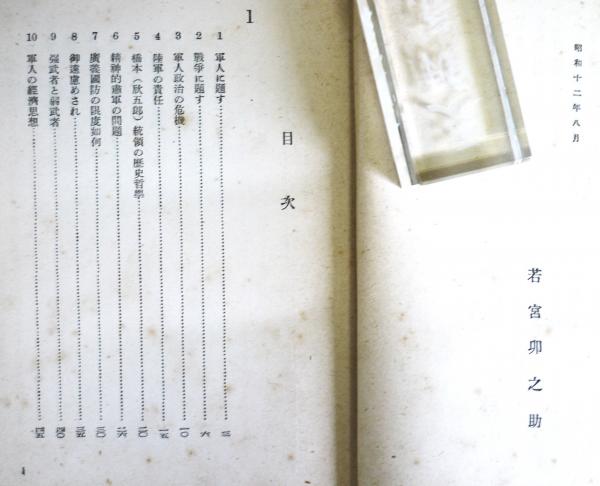 昭和十二年八月
若宮卯之助
目次
1
1 軍人に題す
2 戰爭に題す
3 軍人政治の危機
4 陸軍の責任
5 橋本(欣五郎)統領の歷史哲學
6 精神的憲軍の問題
7 廣義國防の限度如何
8 御遠慮めされ
9 强武者と弱武者
10 軍人の經濟思想